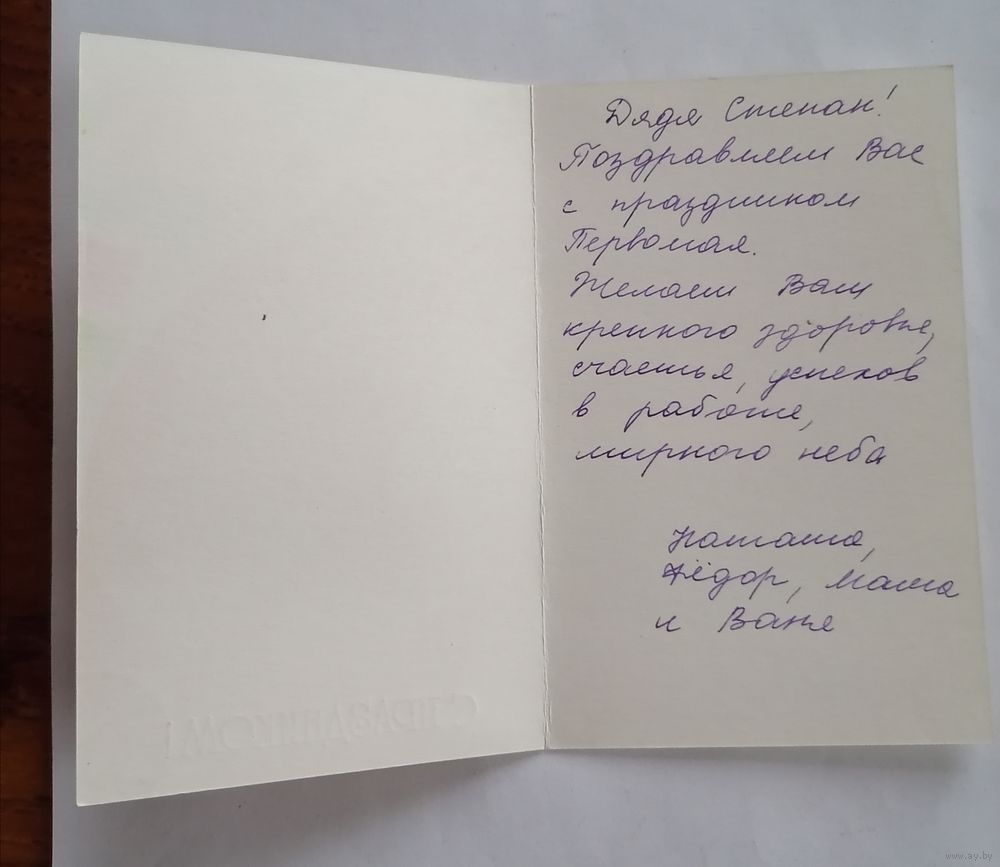 Дядя Степан!
Поздравляем Вас
с праздником
Первомая.
Желаем Вам
крепкого здоровье,
счастья, успехов
в работе,
мирного неба
Наташа,
Фёдор, мама
и Ваня
С ПРАЗДНИКОМ!
www.ay.by